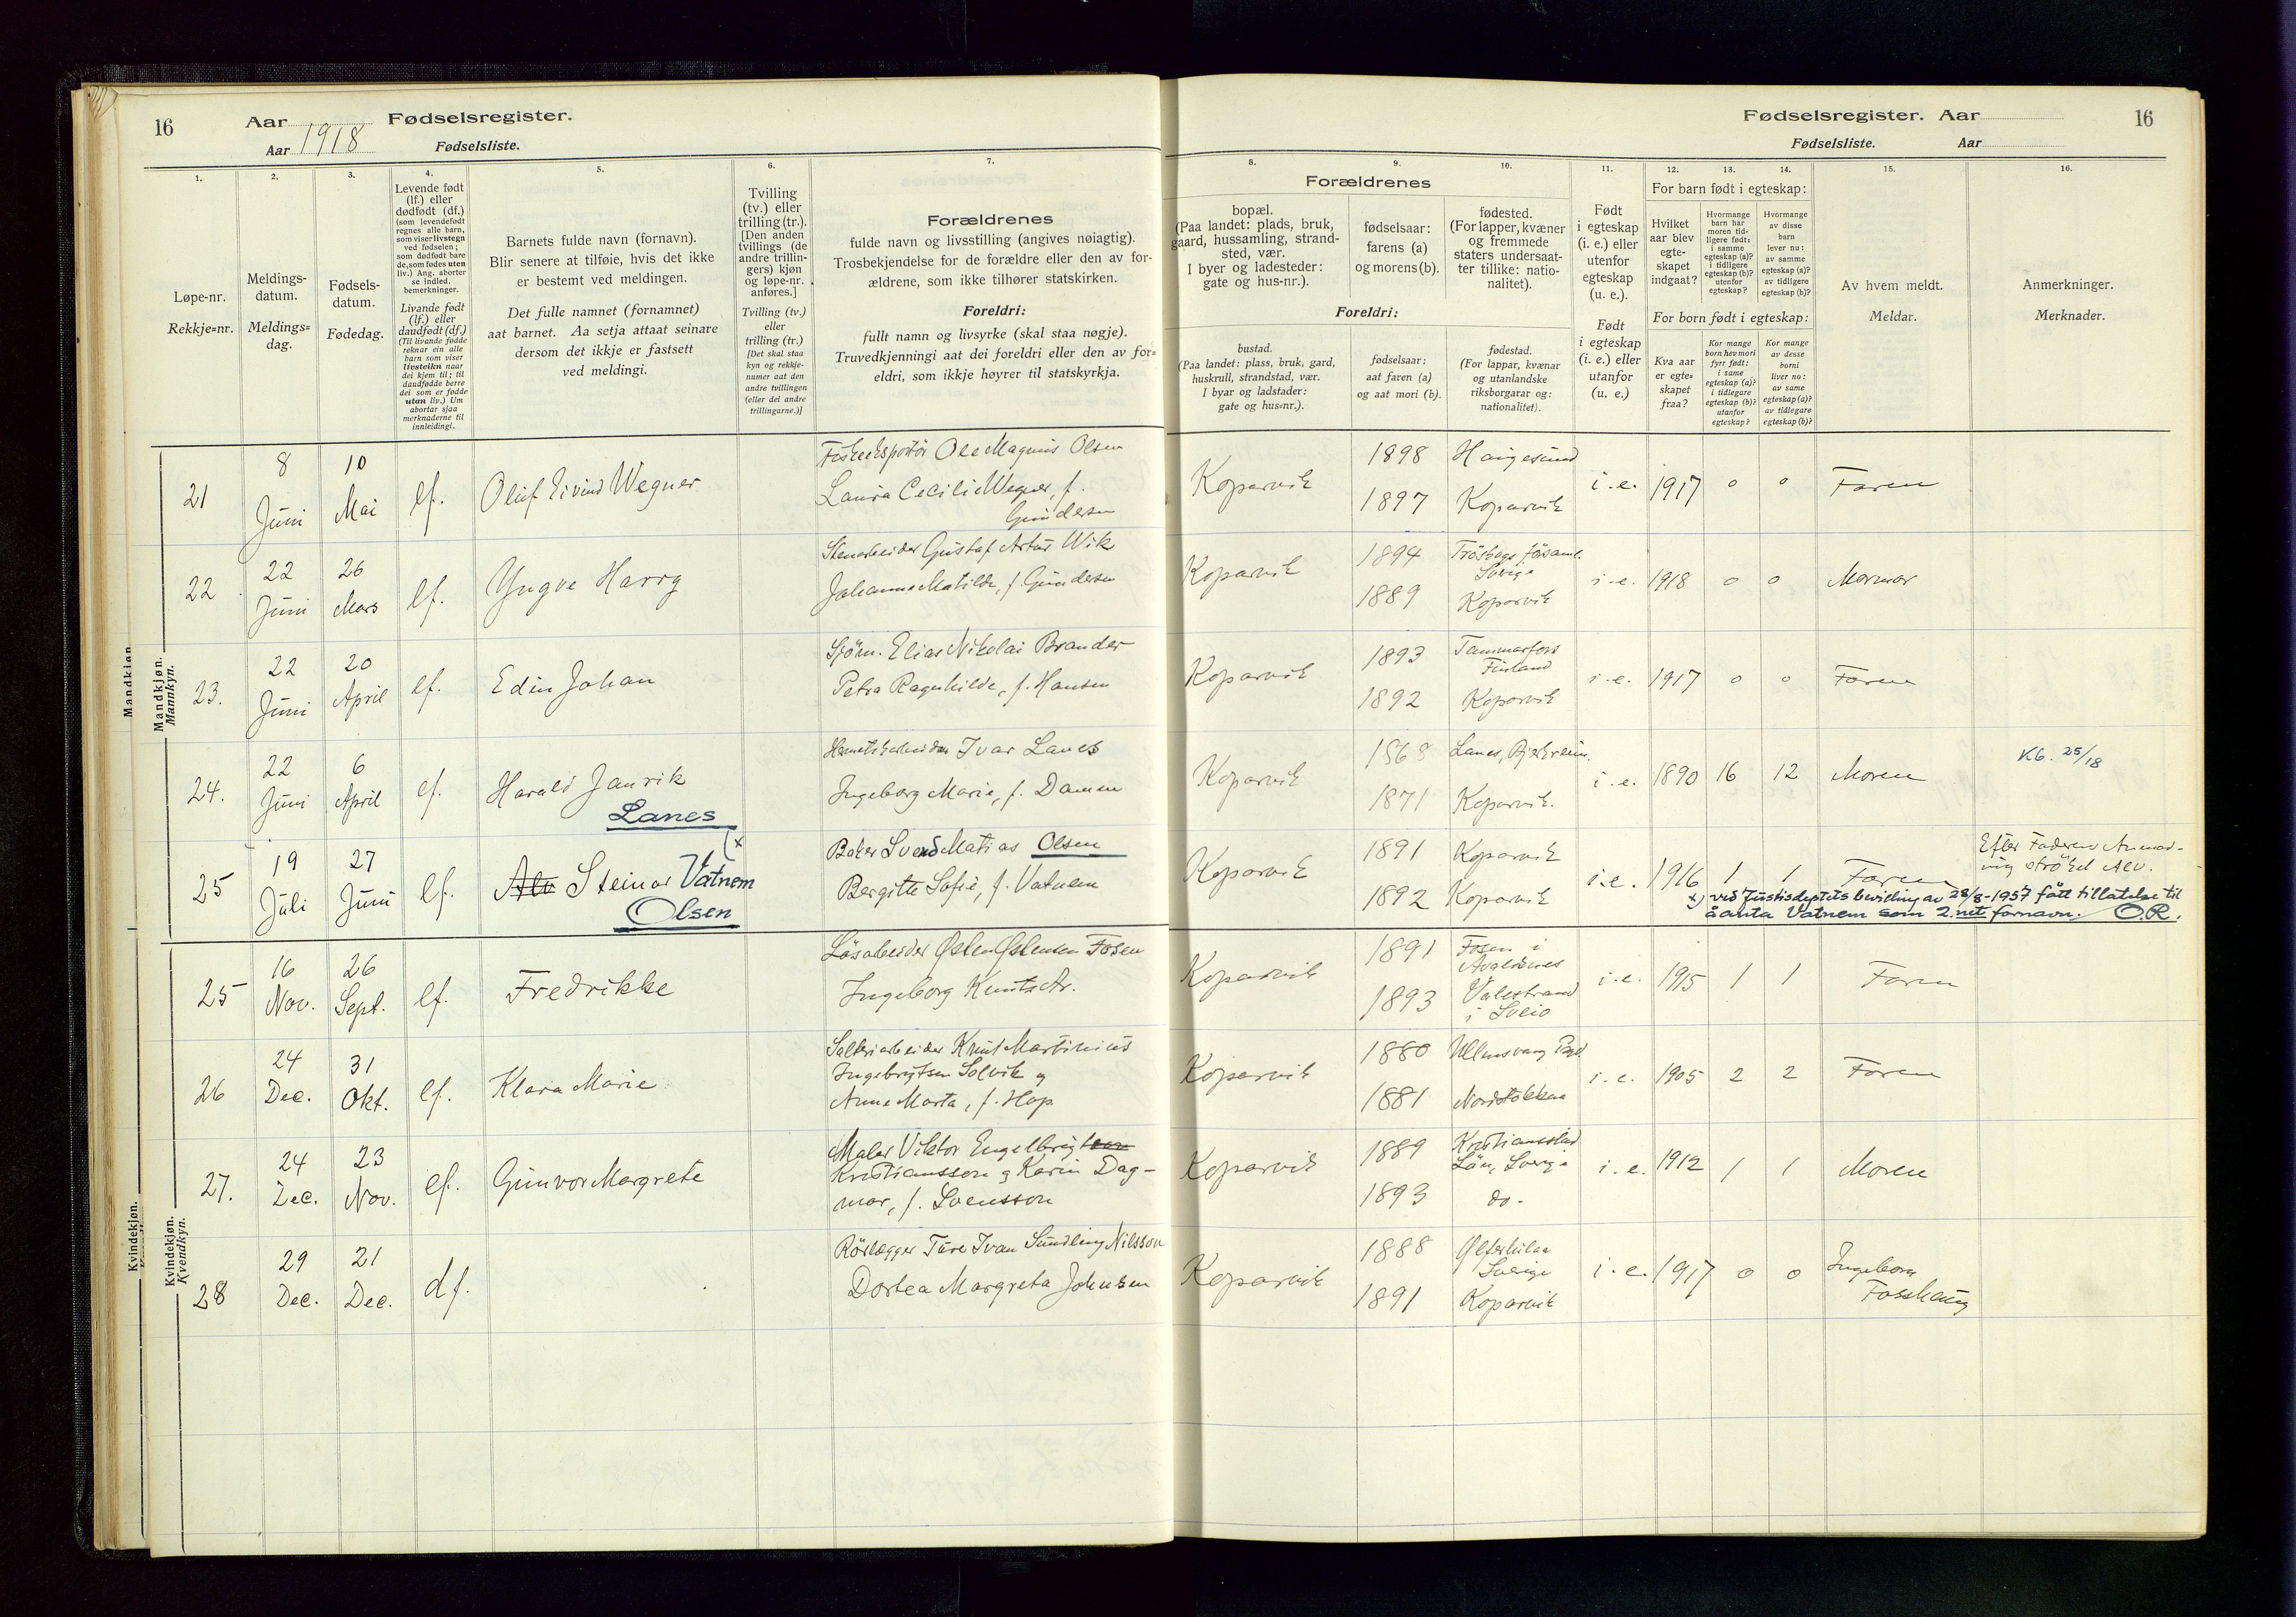 16
Aar
Fødselsregister.
Aar 1918
Fødselsliste.
Fødselsregister. Aar
16
Fødselsliste. Aar
1.
Løpe-nr.
Rekkje=nr.
2.
Meldings-
datum.
Meldings=
dag.
3.
Fødsels-
datum.
Fødedag.
4.
Levende født
(lf.) eller
dødfødt (df.)
(som levendefødt
regnes alle barn,
som viser livstegn
ved fødselen;
som dødfødt bare
de, som fødes uten
liv.) Ang. aborter
se indled.
bemerkninger.
Livande født
(lf.) eller
daudfødt (df.)
(Til livande fødde
reknar ein alle
barn som viser
livsteikn naar
dei kjem til; til
daudfødde berre
dei som er fødde
utan liv.) Um
abortar sjaa
merknaderne til
innleidingi.
5.
Barnets fulde navn (fornavn).
Blir senere at tilføie, hvis det ikke
er bestemt ved meldingen.
Det fulle namnet (fornamnet)
aat barnet. Aa setja attaat seinare
dersom det ikkje er fastsett
ved meldingi.
6.
Tvilling
(tv.) eller
trilling (tr.).
[Den anden
tvillings (de
andre trillin-
gers) kjøn
og løpe-nr.
anføres.]
Tvilling (tv.)
eller
trilling (tr.)
[Det skal staa
kyn og rekkje-
numer aat den
andre tvillingen
(eller dei andre
trillingarne.)]
7.
Forældrenes
fulde navn og livsstilling (angives nøiagtig).
Trosbekjendelse for de forældre eller den av for-
ældrene, som ikke tilhører statskirken.
Foreldri:
fullt namn og livsyrke (skal staa nøgje).
Truvedkjenningi aat dei foreldri eller den av for=
eldri, som ikkje høyrer til statskyrkja.
8.
9.
10.
Forældrenes
bopæl.
(Paa landet: plads, bruk,
gaard, hussamling, strand-
sted, vær.
I byer og ladesteder:
gate og hus-nr.).
fødselsaar:
farens (a)
og morens (b).
fødested.
(For lapper, kvæner
og fremmede
staters undersaat-
ter tillike: natio-
nalitet).
Foreldri:
bustad.
(Paa landet: plass, bruk, gard,
huskrull, strandstad, vær.
I byar og ladstader:
gate og hus=nr.).
fødselsaar:
aat faren (a)
og aat mori (b).
fødestad.
(For lappar, kvænar
og utanlandske
riksborgarar og:
nationalitet).
11.
Født
i egteskap
(i. e.) eller
utenfor
egteskap
(u. e.).
Født
i egteskap
(i. e.) eller
utanfor
(u. e.)
12. 13. 14.
For barn født i egteskap:
Hvilket
aar blev
egte-
skapet
indgaat?
Hvormange
barn har
moren tid-
ligere født:
i samme
egteskap (a)?
i tidligere
egteskap (b)?
utenfor
egteskap?
Hvormange
av disse
barn
lever nu:
av samme
egteskap (a)?
av tidligere
egteskap (b)?
For born født i egteskap:
Kva aar
er egte=
skapet
fraa?
Kor mange
born hev mori
fyrr født:
i same
egteskap (a)?
i tidlegare
egteskap (b)?
utanfor
egteskap?
Kor mange
av desse
borni
liver no:
av same
egteskap (a)?
av tidlegare
egteskap (b)?
15.
Av hvem meldt.
Meldar.
16.
Anmerkninger.
Merknader.
Mandkjøn.
Mandkjøn.
Mankyn.
21 8 Juni 10 Mai lf. Oluf Eivind Wegner Fiskeeksportør Ole Magnus Olsen
Laura Cecilie Wegner, f.
Gundersen
Koparvik 1898 Haugesund
1897 Koparvik i.e. 1917 0 0 Faren
22 22 Juni 26 Mars lf. Yngve Harry Stenarbeider Gustaf Artur Wik
Johanne Matilde, f. Gundersen
Koparvik 1894 församl.
Sverige
1889 Koparvik i.e. 1918 0 0 Mormor
23. 22 Juni 20 April lf. Edin Johan Sjöm. Elias Nikolai Brander
Petra Ragnhilde, f. Hansen
Koparvik 1893 Tammarfors
Finland
1892 Koparvik i.e. 1917 0 0 Faren
24. 22 Juni 6 April lf. Harald Janrik
Lanes
Ivar Lanes
Ingeborg Marie, f. Damm
Koparvik 1868 Lanes, Bjerkreim.
1871 Koparvik. i.e. 1890 16 12 Moren Kb. 25/18
25 19 Juli 27 Juni lf. Alv Steinar Vatnem (x
Olsen
Baker Svend Matias Olsen
Bergitte Sofie, f. Vatnem
Koparvik 1891 Koparvik
1892 Koparvik i.e. 1916 1 1 Faren
Efter Faderens Anmod-
ning strøket Alv.
x) ved Justisdeptets bevilling av 28/8-1957 fått tillatelse til
å anta Vatnem som 2. net fornavn. O.R.
Kvindekjøn.
Kvindekjøn.
Kvendkyn.
25 16 Nov. 26 Sept. lf. Fredrikke Løsarbeider Østen Østensen Fosen
Ingeborg Kuntsdtr.
Koparvik 1891 Fosen i
Avaldsnes
1893 Valestrand
i Sveio i.e. 1915 1 1 Faren
26 24 Dec. 31 Okt. lf. Klara Marie Salteriarbeider Knut Martinius
Ingebrigtsen Solvik og
Anne Marta, f. Hop
Koparvik 1880 Ullensvang
1881 i.e. 1905 2 2 Faren
27. 24 Dec. 23 Nov. lf. Gunvor Margrete Maler Viktor Engelbrigtsen
Kristiansson og Karin Dag-
mar, f. Svensson
Koparvik 1889 Kristiansstad
Län, Sverige
1893 do. i.e. 1912 1 1 Moren
28 29 Dec. 21 Dec. df. Rörlægger Ture Ivan Sundling Nilsson
Dortea Margreta Johnsen
Koparvik 1888 Sverige
1891 Koparvik i.e. 1917 0 0 Ingeborg